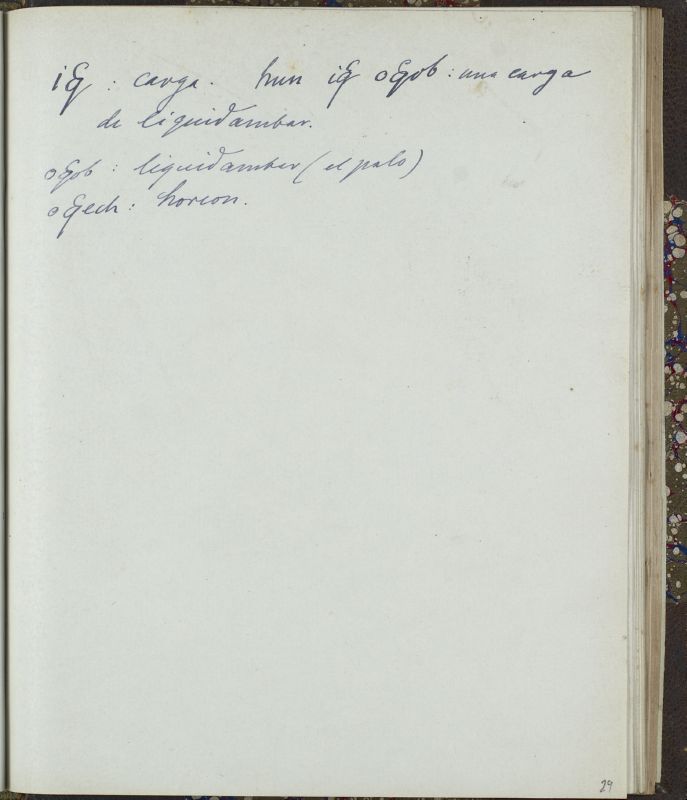 iꜫ : carga. hun iꜫ oꜫob : una carga
de liquidambar.
oꜫob : liquidambar (el palo)
oꜫech : horcon.
29